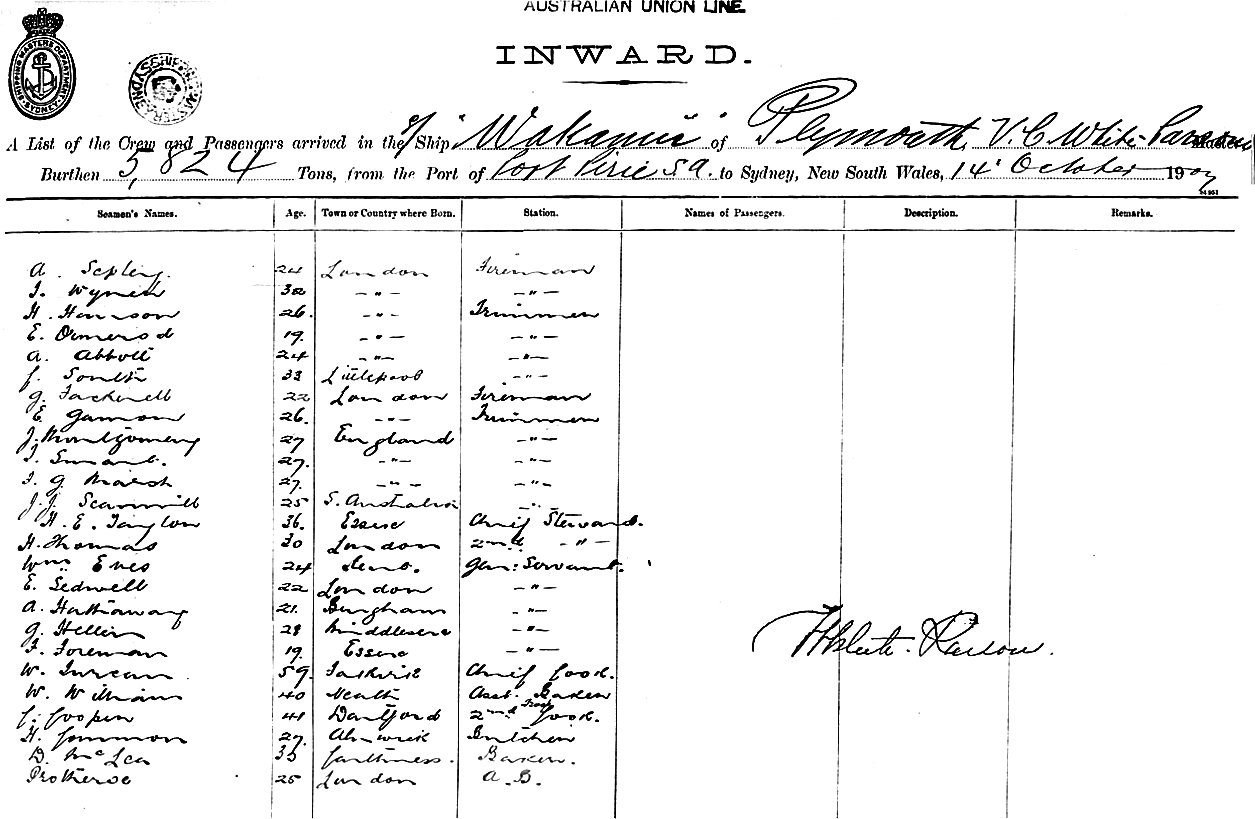 AUSTRALIAN UNION LINE.
INWARD.
SHIPPING MASTERS DEPARTMENT SYDNEY
A List of the Crew and Passengers arrived in the S/ Ship "Wakanui" of Plymouth, V. C. White-Parsons Master
Burthen 5,824 Tons, from the Port of Port Pirie S A. to Sydney, New South Wales, 14 October 1907
Seamen's Names. Age. Town or Country where Born. Station. Names of Passengers. Description. Remarks.
A. 24 London Fireman
32 -"- -"-
H. Harrison 26. -"- Trimmer
E. Ormerod 19. -"- -"-
A. Abbott 24 -"- -"-
South 33 -"-
G. 22 London Fireman
E. Gamon 26. -"- Trimmer
J. Montgomery 27 England -"-
27. -"- -"-
G. Marsh 27. -"- -"-
J. J. Scammell 25 S. Australia -"-
H. E. 36. Essex Chief Steward.
H. Thomas 30 London 2nd -"-
Wm. Eves 24 Gen: Servant.
E. Sedwell 22 London -"-
A. Hathaway 21. -"-
G. 28 Middlesex -"-
F. Foreman 19. Essex -"-
W. 59. Chief Cook.
W. William 40 Neath Asst. Baker
C. Cooper 41 Dartford 2nd Cook.
H. 27. Alnwick Butcher
D. McLea 35 Caithness. Baker.
Protheroe 25 London A.B.